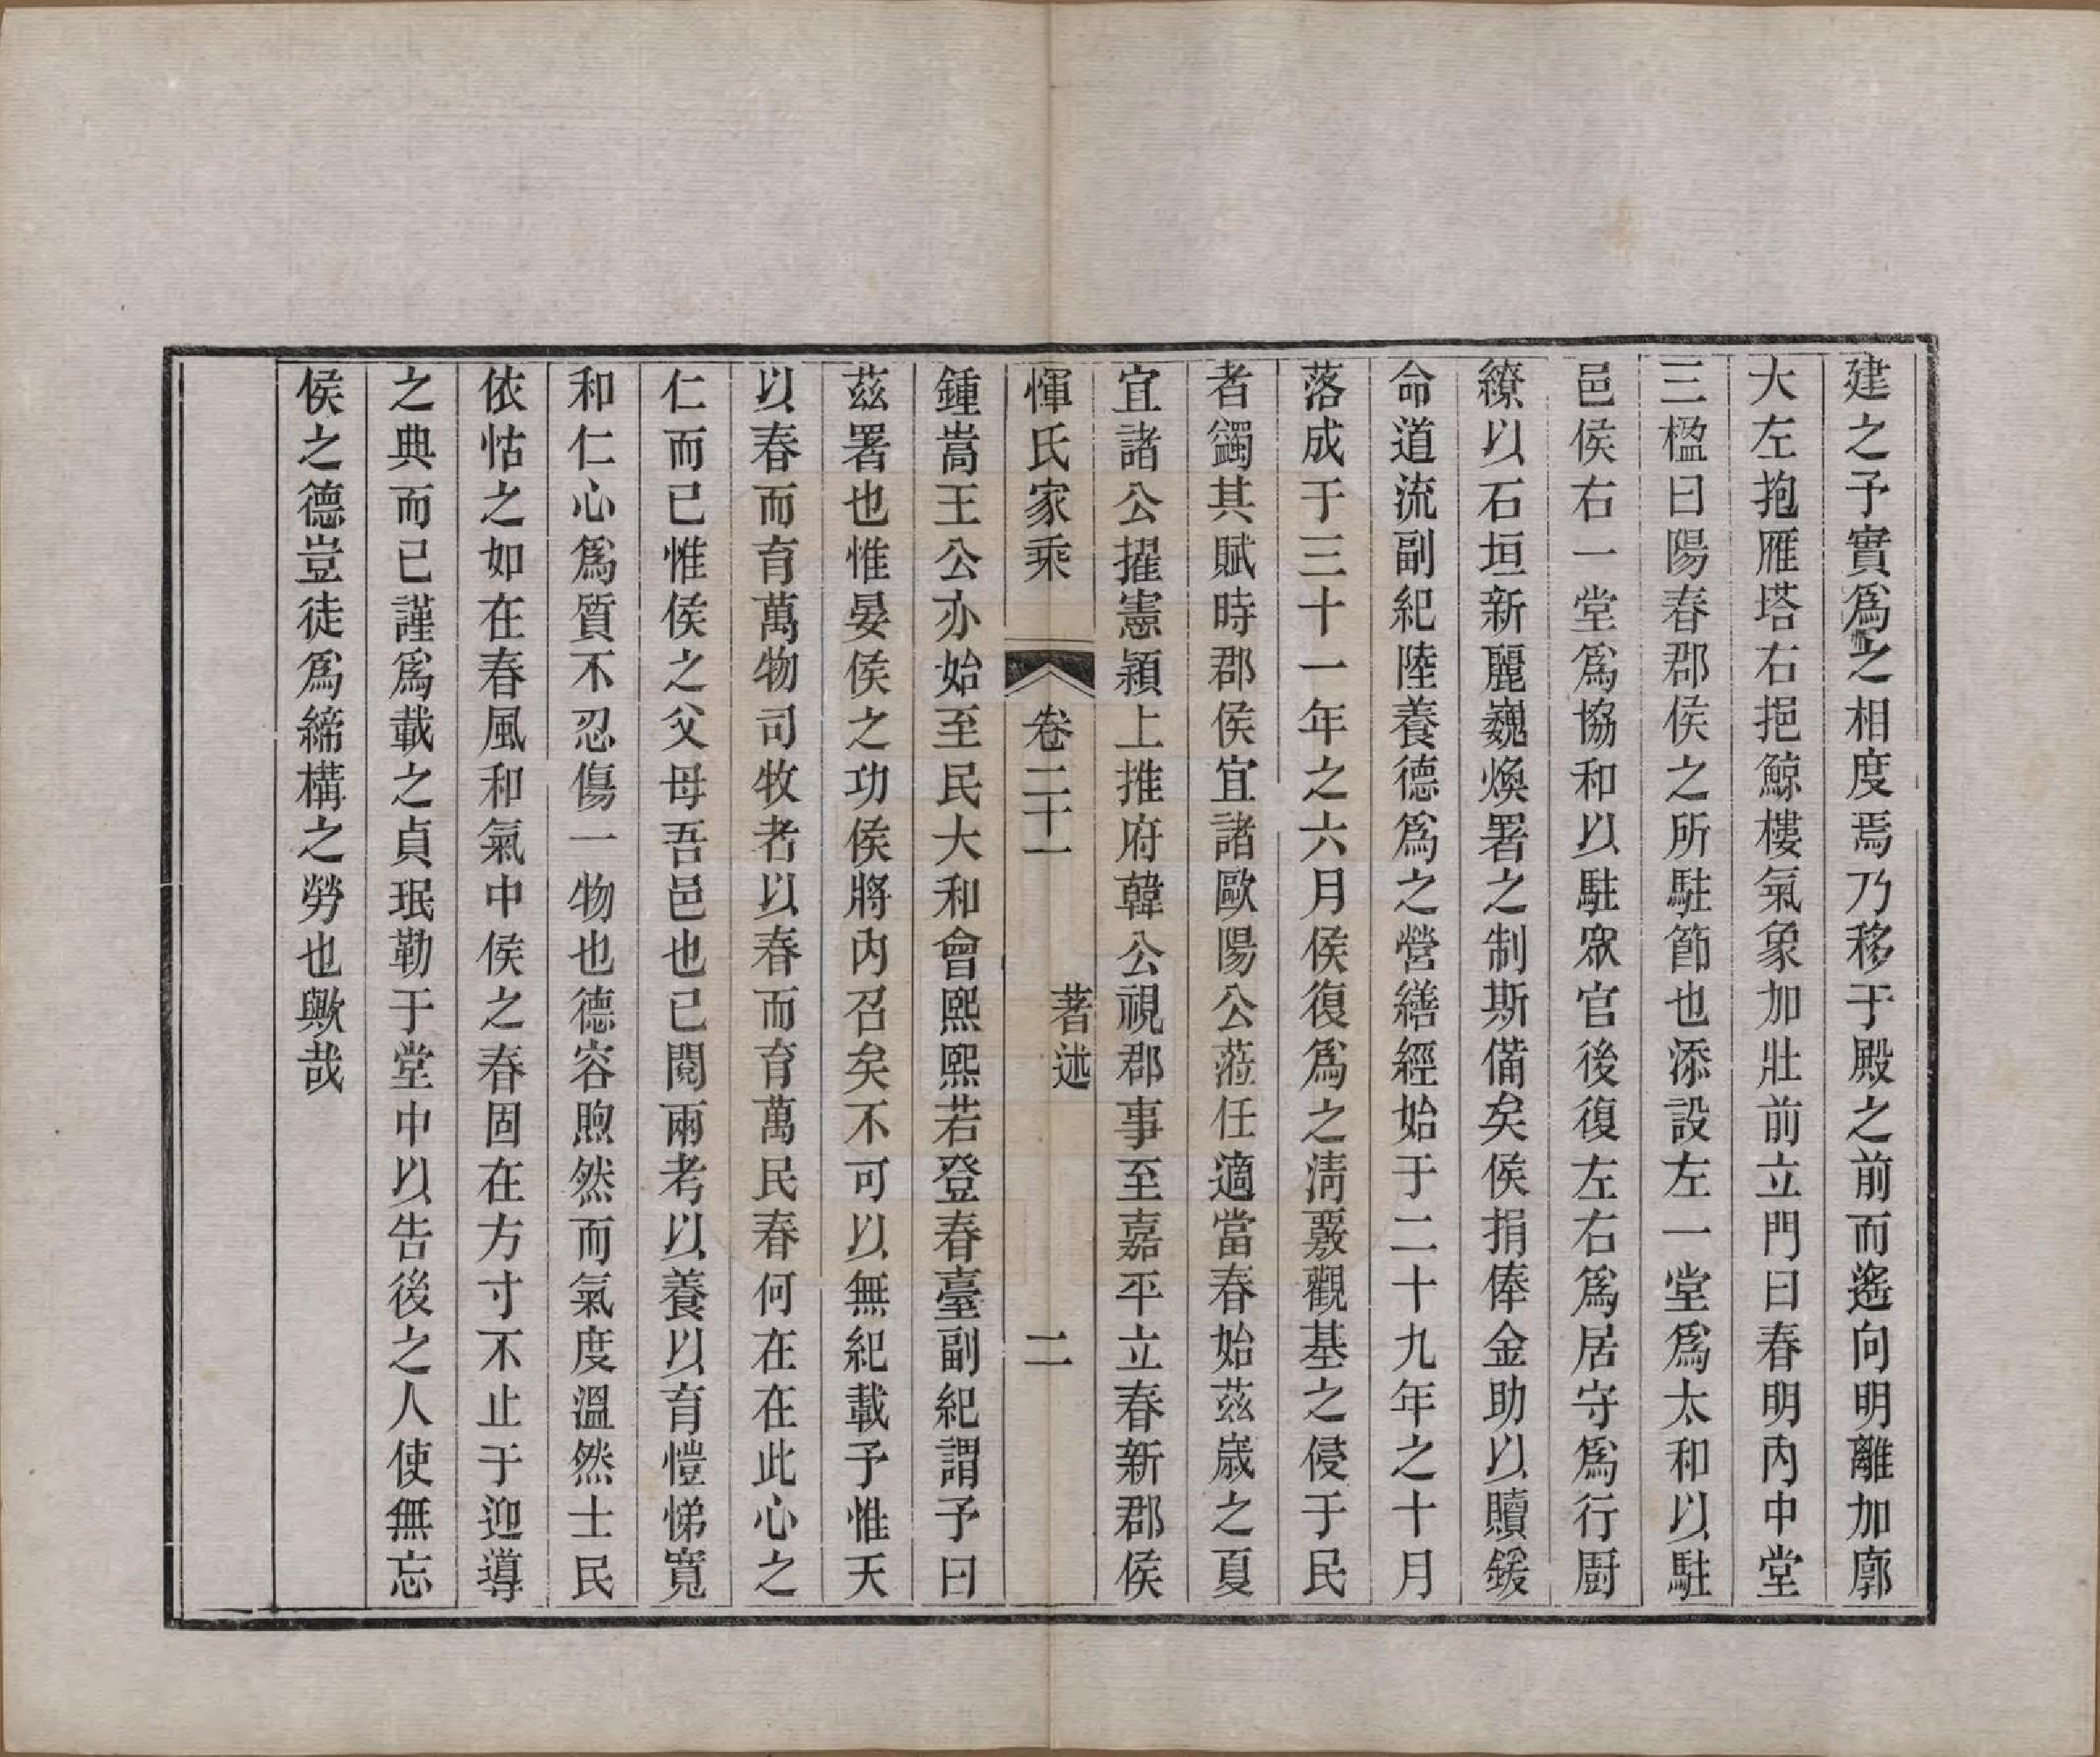 建之予實爲之相度焉乃移于殿之前而遙向明離加廓
大左抱雁塔右挹鯨樓氣象加壯前立門曰春明內中堂
三楹曰陽春郡侯之所駐節也添設左一堂爲太和以駐
邑侯右一堂爲協和以駐眾官後復左右爲居守爲行厨
繚以石垣新麗巍煥署之制斯備矣侯捐俸金助以贖鍰
命道流副紀陸養德爲之營繕經始于二十九年之十月
落成于三十一年之六月侯復爲之淸覈觀基之侵于民
者蠲其賦時郡侯宜諸歐陽公蒞任適當春始茲歲之夏
宜諸公擢憲潁上推府韓公視郡事至嘉平立春新郡侯
惲氏家乘 卷二十一 著述 二
鍾嵩王公亦始至民大和會熙熙若登春臺副紀謂予曰
茲署也惟晏侯之功侯將內召矣不可以無紀載予惟天
以春而育萬物司牧者以春而育萬民春何在在此心之
仁而已惟侯之父母吾邑也已閱兩考以養以育愷悌寬
和仁心爲質不忍傷一物也德容煦然而氣度溫然士民
依怙之如在春風和氣中侯之春固在方寸不止于迎導
之典而已謹爲載之貞珉勒于堂中以告後之人使無忘
侯之德豈徒爲締構之勞也歟哉